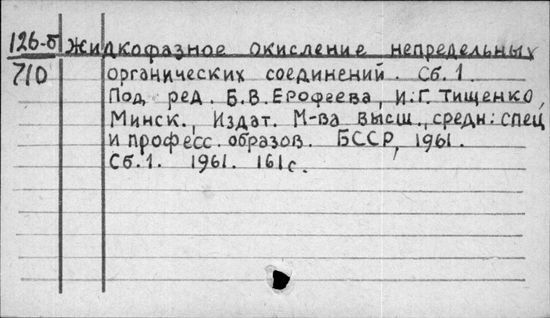 126-б Жидкофазное окисление непредельных
710 органических соединений. Сб. 1.
Под ред. Б.В. Ерофеева, И.Г. Тищенко,
Минск., Издат. М-ва высш., средн. спец
и професс. образов. БССР, 1961.
Сб. 1. 1961. 161 с.